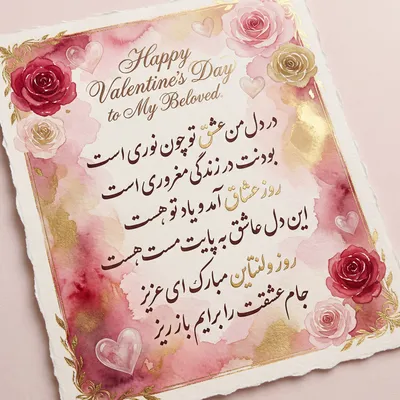 Happy
Valentine's Day
to My Beloved.
در دل من عشق تو چون نوری است
بودنت در زندگی مغروری است
روز عشاق آمد و یاد تو هست
این دل عاشق به پایت مست هست
روز ولنتاین مبارک ای عزیز
جام عشقت را برایم باز ریز